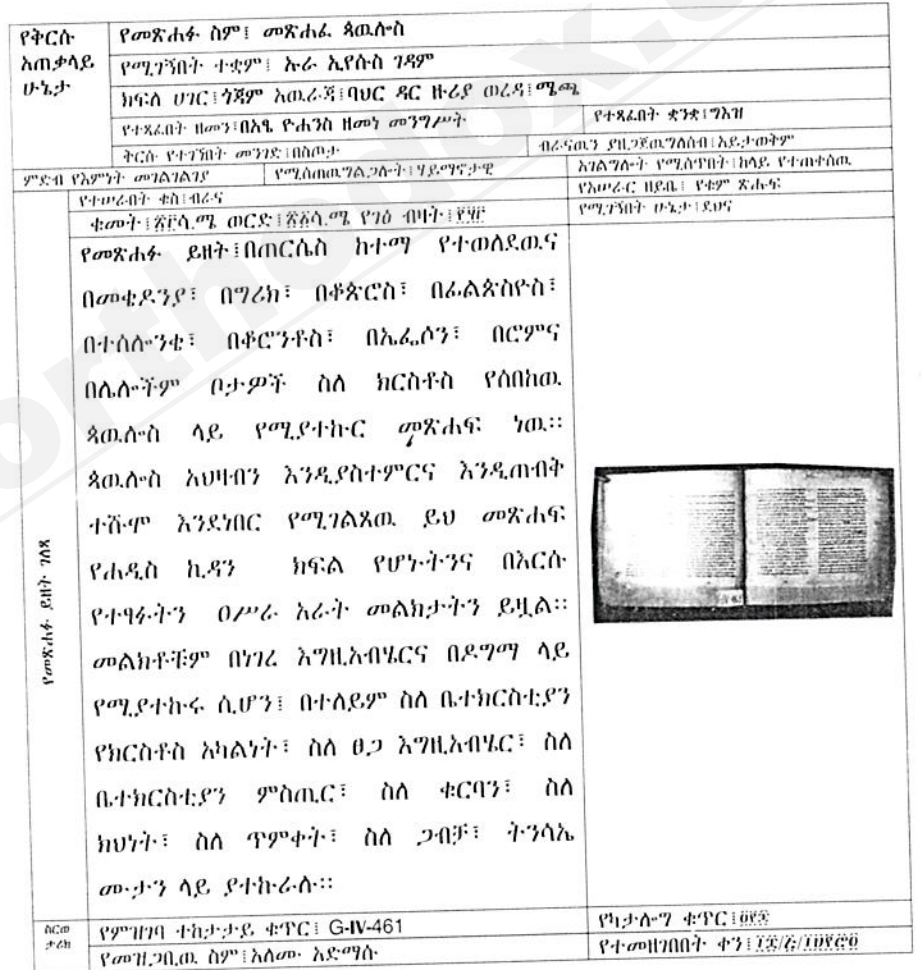 የቅርሱ አጠቃላይ ሁኔታ
የመጽሐፉ ስም፤ መጽሐፈ ጳዉሎስ
የሚገኝበት ተቋም፤ ኡራ ኢየሱስ ገዳም
ክፍለ ሀገር፤ጎጃም አዉራጃ፤ባህር ዳር ዙሪያ ወረዳ፤ሜጫ
የተጻፈበት ዘመን፤በአፄ ዮሐንስ ዘመነ መንግሥት
የተጻፈበት ቋንቋ፤ግእዝ
ቅርሱ የተገኘበት መንገድ፤በስጦታ
ብራናዉን ያዘጋጀዉግለሰብ፤አይታወቅም
ምድብ የእምነት መገልገልገያ
የሚሰጠዉግልጋሎት፤ሃይማኖታዊ
አገልግሎት የሚሰጥበት፤ከላይ የተጠቀሰዉ
የተሠራበት ቁስ፤ብራና
የአሠራር ዘይቤ፤ የቁም ጽሑፍ
ቁመት፤
የገፅ ብዛት፤
የሚገኝበት ሁኔታ፤ደህና
የመጽሐፉ ይዘት ገለጻ
የመጽሐፉ ይዘት፤በጠርሴስ ከተማ የተወለደዉና
በመቄዶንያ፣ በግሪክ፣ በቆጵሮስ፣ በፊልጵስዮስ፣
በተሰሎንቄ፣ በቆሮንቶስ፣ በኤፌሶን፣ በሮምና
በሌሎችም ቦታዎች ስለ ክርስቶስ የሰበከዉ
ጳዉሎስ ላይ የሚያተኩር መጽሐፍ ነዉ፡፡
ጳዉሎስ አህዛብን እንዲያስተምርና እንዲጠብቅ
ተሹሞ እንደነበር የሚገልጸዉ ይህ መጽሐፍ
የሐዲስ ኪዳን ክፍል የሆኑትንና በእርሱ
የተፃፉትን ዐሥራ አራት መልክታትን ይዟል፡፡
መልክቶቹም በነገረ እግዚአብሄርና በዶግማ ላይ
የሚያተኩሩ ሲሆን፤ በተለይም ስለ ቤተክርስቲያን
የክርስቶስ አካልነት፣ ስለ ፀጋ እግዚአብሄር፣ ስለ
ቤተክርስቲያን ምስጢር፣ ስለ ቁርባን፣ ስለ
ክህነት፣ ስለ ጥምቀት፣ ስለ ጋብቻ፣ ትንሳኤ
ሙታን ላይ ያተኩራሉ፡፡
ስርወ ታሪክ
የምዝገባ ተከታታይ ቁጥር፤ G-IV-461
የካታሎግ ቁጥር፤
የመዝጋቢዉ ስም፤አለሙ አድማሱ
የተመዘገበበት ቀን፤